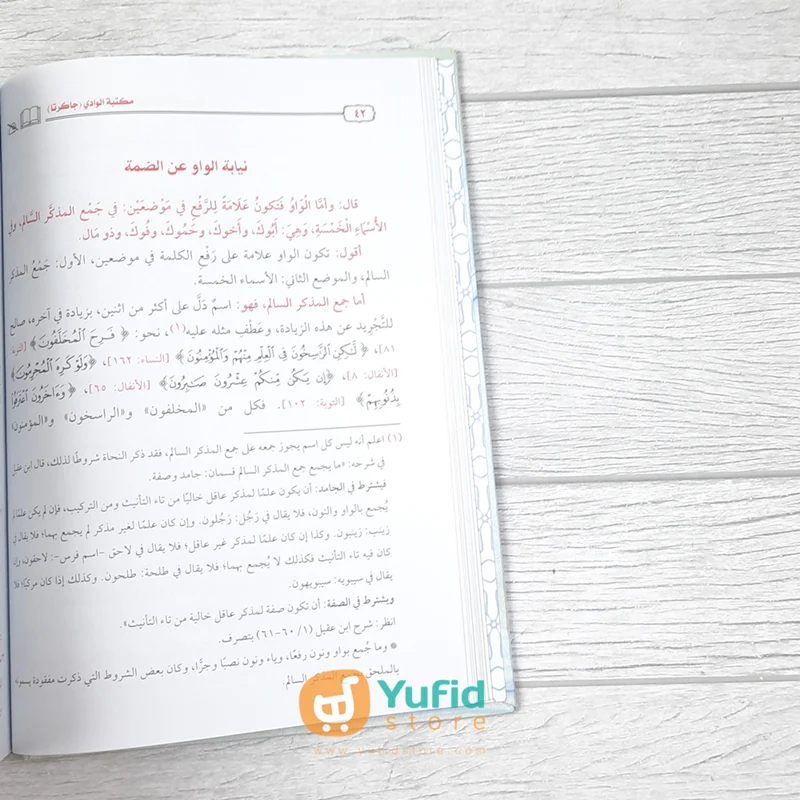 مكتبة الوادي (جاكرتا)
٤٢
نيابة الواو عن الضمة
قال: وأمَّا الْوَاوُ فَتَكونُ عَلَامَةً لِلرَّفْعِ في مَوْضعَيْن: في جَمْعِ المذكَّر السَّالم، وفي
الأَسْمَاءِ الْخَمْسَةِ، وَهِيَ: أَبُوكَ، وَأَخوكَ، وحَمُوكَ، وفُوكَ، وذو مَال.
أقول: تكون الواو علامة على رَفْعِ الكلمة في موضعين، الأول: جَمْعُ المذكر
السالم، والموضع الثاني: الأسماء الخمسة.
أما جمع المذكر السالم، فهو: اسمٌ دَلَّ على أكثر من اثنين، بزيادة في آخره، صالح
للتَّجْرِيد عن هذه الزيادة، وعَطْفِ مثله عليه(١)، نحو: ﴿ فَرِحَ ٱلْمُخَلَّفُونَ ﴾
٨١]، ﴿ لَّٰكِنِ ٱلرَّٰسِخُونَ فِى ٱلْعِلْمِ مِنْهُمْ وَٱلْمُؤْمِنُونَ ﴾ [النساء: ١٦٢]، ﴿وَلَوْ كَرِهَ ٱلْمُجْرِمُونَ﴾
[الأنفال: ٨]، ﴿إِن يَكُن مِّنكُمْ عِشْرُونَ صَٰبِرُونَ﴾ [الأنفال: ٦٥]، ﴿ وَءَاخَرُونَ ٱعْتَرَفُوا۟
بِذُنُوبِهِمْ﴾ [التوبة: ١٠٢]. فكل من «المخلفون» و«الراسخون» و«المؤمنون
(١) اعلم أنه ليس كل اسم يجوز جمعه على جمع المذكر السالم، فقد ذكر النحاة شروطًا لذلك، قال ابن عقيل
في شرحه: «ما يجمع جمع المذكر السالم قسمان: جامد وصفة.
فيشترط في الجامد: أن يكون علمًا لمذكر عاقل خاليًا من تاء التأنيث ومن التركيب، فإن لم يكن علمًا لم
يُجمع بالواو والنون، فلا يقال في رَجُل: رَجُلون. وإن كان علمًا لغير مذكر لم يجمع بهما؛ فلا يقال في
زينب: زينبون. وكذا إن كان علمًا لمذكر غير عاقل؛ فلا يقال في لاحق -اسم فرس-: لاحقون، وإن
كان فيه تاء التأنيث فكذلك لا يُجمع بهما؛ فلا يقال في طلحة: طلحون. وكذلك إذا كان مركبًا؛ فلا
يقال في سيبويه: سيبويهون.
ويشترط في الصفة: أن تكون صفة لمذكر عاقل خالية من تاء التأنيث».
انظر: شرح ابن عقيل (١/ ٦٠-٦١) بتصرف.
* وما جُمع بواو ونون رفعًا، وياء ونون نصبًا وجرًّا، وكان بعض الشروط التي ذكرت مفقودة يسمى
بالملحق بجمع المذكر السالم.
Yufid
store
www.yufidstore.com